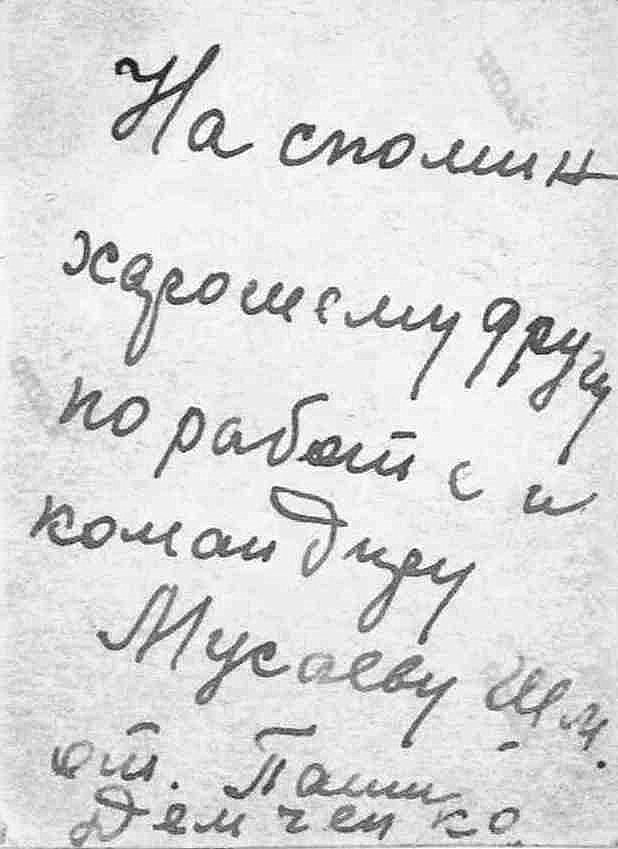 На спомин
хорошему другу
по работе и
командиру
Мусаеву Ш.М.
от. Паши
Демченко